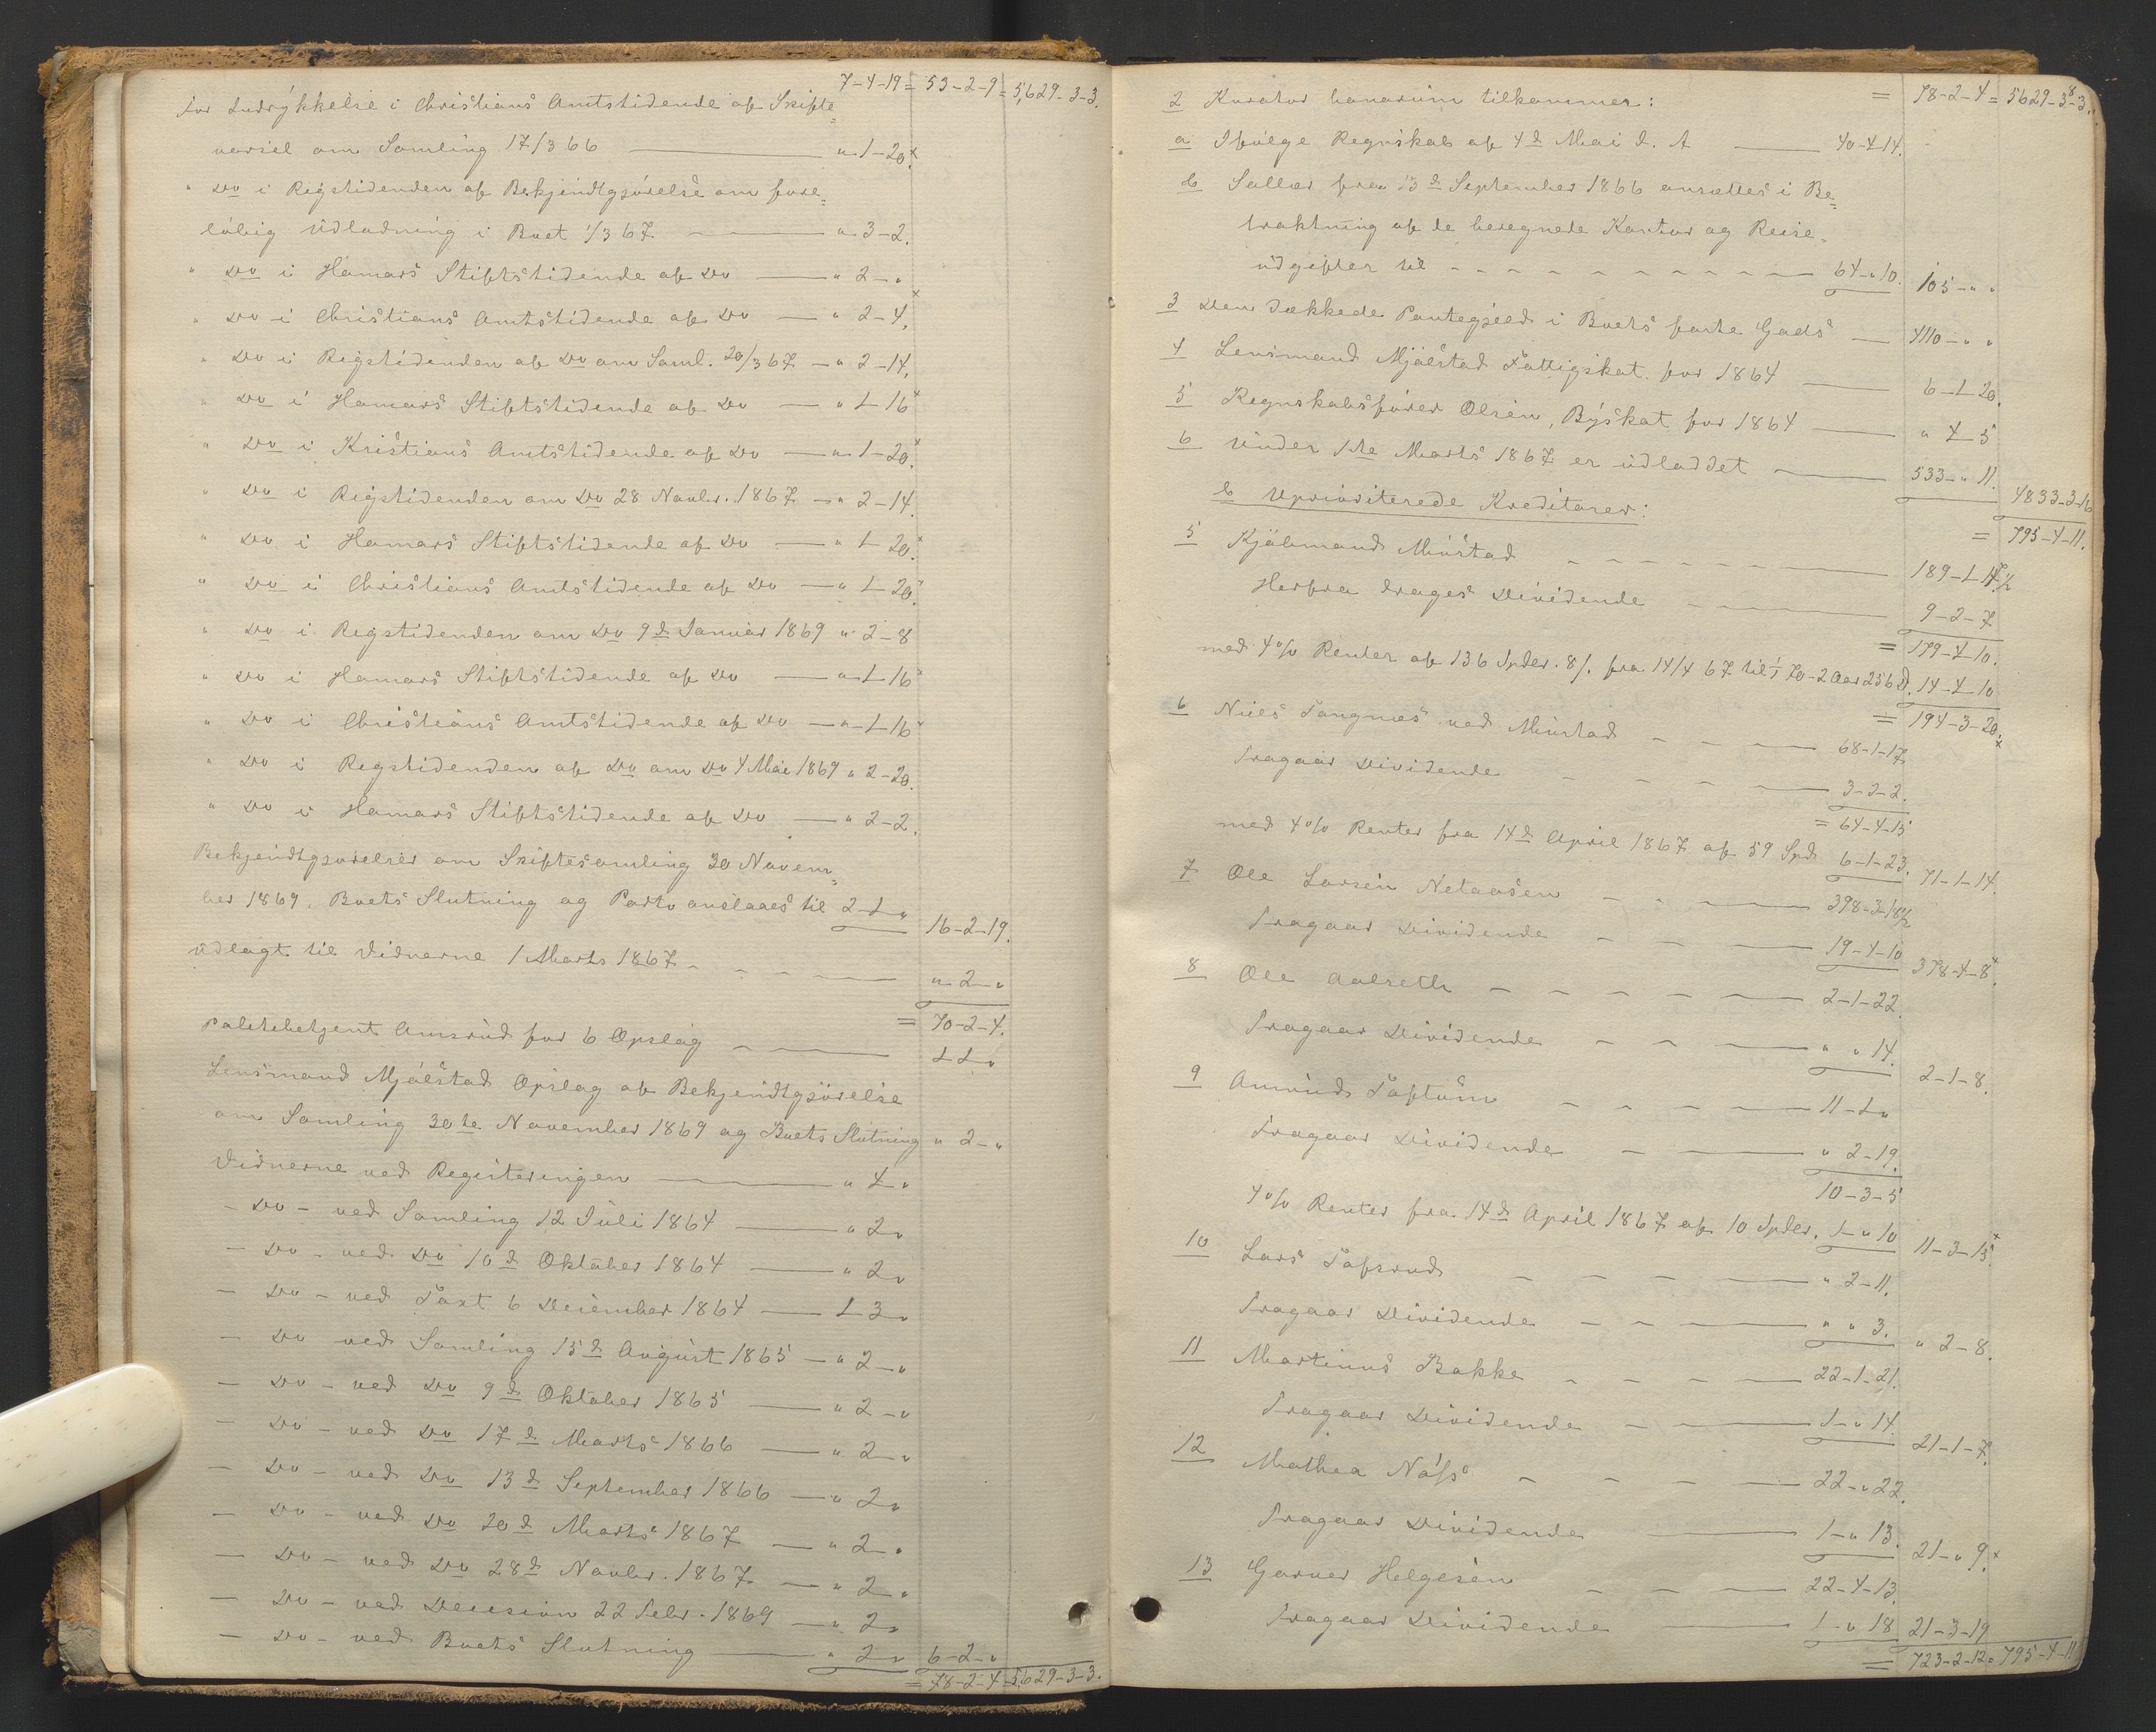 7-4-19 = 53-2-9 = 5,629-3-3.
For Indrykkelse i Christians Amtstidende af Skifte=
varsel om Samling 17/3 66 — " 1-20.
" Do i Rigstidenden af Bekjendtgjörelse om fore=
löbig Udlodning i Boet 1/3 67 — " 3-2.
" Do i Hamars Stiftstidende af Do — " 2-"
" Do i Christians Amtstidende af Do — " 2-4.
" Do i Rigstidenden af Do om Saml. 20/3 67 — " 2-14.
" Do i Hamars Stiftstidende af Do — " 1-16
" Do i Kristians Amtstidende af Do — " 1-20.
" Do i Rigstidenden om Do 28 Novbr. 1867 — " 2-14.
" Do i Hamars Stiftstidende af Do — " 1-20.
" Do i Christians Amtstidende af Do — " 1-20.
" Do i Rigstidenden om Do 9d Januar 1869 " 2-8
" Do i Hamars Stiftstidende af Do — " 1-16
" Do i Christians Amtstidende af Do — " 1-16
" Do i Rigstidenden af Do om Do 4 Mai 1869 " 2-20.
" Do i Hamars Stiftstidende af Do — " 2-2.
Bekjendtgjörelser om Skiftesamling 30 Novem=
ber 1869. Boets Slutning og Porto anslaaes til 2-1-" 16-2-19.
Udlagt til Vidnerne 1 Marts 1867 — " 2-"
= 70-2-4.
Politibetjent Amsrud for 6 Opslag — 1-1-"
Lensmand Mjölstad Opslag af Bekjendtgjörelse
om Samling 30te November 1869 og Boets Slutning " 2-"
Vidnerne ved Registeringen — " 4-"
- Do - ved Samling 12 Juli 1864 — " 2-"
- Do - ved Do 10d Oktober 1864 — " 2-"
- Do - ved Taxt 6 December 1864 — 1-3-"
- Do ved Samling 15d August 1865 — " 2-"
- Do - ved Do 9d Oktober 1865 — " 2-"
- Do - ved Do 17d Marts 1866 — " 2-"
- Do - ved Do 13d September 1866 — " 2-"
- Do - ved Do 20d Marts 1867 — " 2-"
- Do - ved Do 28d Novbr. 1867 — " 2-"
- Do - ved Decision 22 Febr. 1869 — " 2-"
- Do - ved Boets Slutning — " 2-" 6-2-"
= 78-2-4 = 5,629-3-3.
= 78-2-4 = 5629-3-3.
2 Kurator honorum tilkommer:
a Ifölge Regnskab af 4d Mai d. A — 40-4-14.
b Sallær fra 13d September 1866 ansættes i Be=
traktning af de beregnede Kontor og Reise=
udgifter til — 64-"-10. 105-"-"
3 Den dækkede Pantegjeld i Boets faste Gods — 4110-"-"
4 Lensmand Mjölstad Fattigskat for 1864 — 6-1-20.
5 Regnskabsförer Olsen, Byskat for 1864 — " 4-5
6 Under 1te Marts 1867 er udloddet — 533-"-11. 4833-3-16
b Uprioriterede Kreditorer: = 795-4-11.
5 Kjöbmand Mustad — 189-1-17 1/2
Herfra drages Dividende — 9-2-7.
= 179-4-10.
med 4% Renter af 136 Spdr. 8/. fra 14/4 67 til 1/1 70 - 2 Aar 256 d. 14-4-10
= 194-3-20.
6 Niels Tangnæs ved Mustad — 68-1-17.
Fragaar Dividende — 3-2-2.
= 64-4-15
med 4% Renter fra 14d April 1867 af 59 Spd 6-1-23. 71-1-14.
7 Ole Larsen Netaasen — 398-3-18 1/2
Fragaar Dividende — 19-4-10 378-4-8.
8 Ole Aalseth — 2-1-22.
Fragaar Dividende — " " 14. 2-1-8.
9 Amund Toftum — 11-1-"
Fragaar Dividende — " 2-19.
10-3-5
4% Renter fra 14d April 1867 af 10 Spdr. 1-"-10 11-3-15
10 Lars Tofsrud — " 2-11.
Fragaar Dividende — " " 3. " 2-8.
11 Martinus Bakke — 22-1-21.
Fragaar Dividende — 1-"-14. 21-1-7.
12 Mathea Næss — 22-"-22.
Fragaar Dividende — 1-"-13. 21-"-9.
13 Garver Helgesen — 22-4-13.
Fragaar Dividende — 1-"-18 21-3-19
= 723-2-12 = 795-4-11.